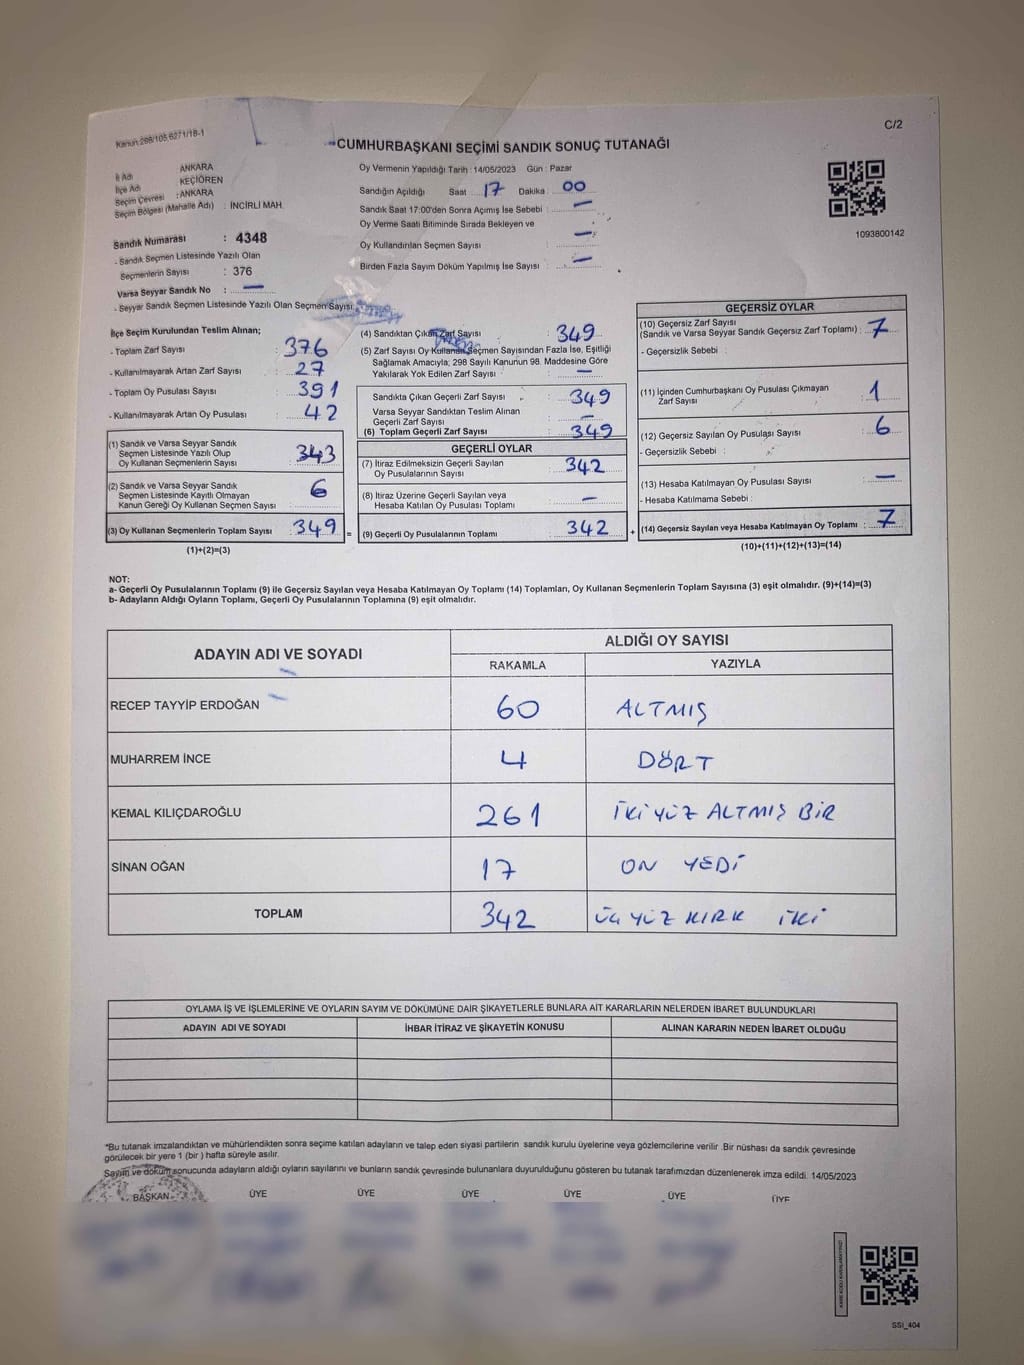 Kanun:298/105,6271/18-1
C/2
CUMHURBAŞKANI SEÇİMİ SANDIK SONUÇ TUTANAĞI
İl Adı : ANKARA
İlçe Adı : KEÇİÖREN
Seçim Çevresi : ANKARA
Seçim Bölgesi (Mahalle Adı) : İNCİRLİ MAH.
Sandık Numarası : 4348
- Sandık Seçmen Listesinde Yazılı Olan
Seçmenlerin Sayısı : 376
Varsa Seyyar Sandık No : —
- Seyyar Sandık Seçmen Listesinde Yazılı Olan Seçmen Sayısı
Oy Vermenin Yapıldığı Tarih : 14/05/2023 Gün : Pazar
Sandığın Açıldığı Saat 17 Dakika : 00
Sandık Saat 17:00'den Sonra Açımış İse Sebebi : —
Oy Verme Saati Bitiminde Sırada Bekleyen ve
Oy Kullandırılan Seçmen Sayısı : —
Birden Fazla Sayım Döküm Yapılmış İse Sayısı : —
1093800142
İlçe Seçim Kurulundan Teslim Alınan;
- Toplam Zarf Sayısı : 376
- Kullanılmayarak Artan Zarf Sayısı : 27
- Toplam Oy Pusulası Sayısı : 391
- Kullanılmayarak Artan Oy Pusulası : 42
(1) Sandık ve Varsa Seyyar Sandık
Seçmen Listesinde Yazılı Olup
Oy Kullanan Seçmenlerin Sayısı : 343
(2) Sandık ve Varsa Seyyar Sandık
Seçmen Listesinde Kayıtlı Olmayan
Kanun Gereği Oy Kullanan Seçmen Sayısı : 6
(3) Oy Kullanan Seçmenlerin Toplam Sayısı : 349
(1)+(2)=(3)
(4) Sandıktan Çıkan Zarf Sayısı : 349
(5) Zarf Sayısı Oy Kullanan Seçmen Sayısından Fazla İse, Eşitliği
Sağlamak Amacıyla, 298 Sayılı Kanunun 98. Maddesine Göre
Yakılarak Yok Edilen Zarf Sayısı : —
Sandıkta Çıkan Geçerli Zarf Sayısı : 349
Varsa Seyyar Sandıktan Teslim Alınan
Geçerli Zarf Sayısı : —
(6) Toplam Geçerli Zarf Sayısı : 349
GEÇERLİ OYLAR
(7) İtiraz Edilmeksizin Geçerli Sayılan
Oy Pusulalarının Sayısı : 342
(8) İtiraz Üzerine Geçerli Sayılan veya
Hesaba Katılan Oy Pusulası Toplamı : —
= (9) Geçerli Oy Pusulalarının Toplamı : 342 +
GEÇERSİZ OYLAR
(10) Geçersiz Zarf Sayısı
(Sandık ve Varsa Seyyar Sandık Geçersiz Zarf Toplamı) : 7
- Geçersizlik Sebebi :
(11) İçinden Cumhurbaşkanı Oy Pusulası Çıkmayan
Zarf Sayısı : 1
(12) Geçersiz Sayılan Oy Pusulası Sayısı : 6
- Geçersizlik Sebebi :
(13) Hesaba Katılmayan Oy Pusulası Sayısı : —
- Hesaba Katılmama Sebebi :
(14) Geçersiz Sayılan veya Hesaba Katılmayan Oy Toplamı : 7
(10)+(11)+(12)+(13)=(14)
NOT:
a- Geçerli Oy Pusulalarının Toplamı (9) ile Geçersiz Sayılan veya Hesaba Katılmayan Oy Toplamı (14) Toplamları, Oy Kullanan Seçmenlerin Toplam Sayısına (3) eşit olmalıdır. (9)+(14)=(3)
b- Adayların Aldığı Oyların Toplamı, Geçerli Oy Pusulalarının Toplamına (9) eşit olmalıdır.
ADAYIN ADI VE SOYADI
ALDIĞI OY SAYISI
RAKAMLA YAZIYLA
RECEP TAYYİP ERDOĞAN 60 ALTMIŞ
MUHARREM İNCE 4 DÖRT
KEMAL KILIÇDAROĞLU 261 İKİ YÜZ ALTMIŞ BİR
SİNAN OĞAN 17 ON YEDİ
TOPLAM 342 ÜÇ YÜZ KIRK İKİ
OYLAMA İŞ VE İŞLEMLERİNE VE OYLARIN SAYIM VE DÖKÜMÜNE DAİR ŞİKAYETLERLE BUNLARA AİT KARARLARIN NELERDEN İBARET BULUNDUKLARI
ADAYIN ADI VE SOYADI İHBAR İTİRAZ VE ŞİKAYETİN KONUSU ALINAN KARARIN NEDEN İBARET OLDUĞU
*Bu tutanak imzalandıktan ve mühürlendikten sonra seçime katılan adayların ve talep eden siyasi partilerin sandık kurulu üyelerine veya gözlemcilerine verilir .Bir nüshası da sandık çevresinde
görülecek bir yere 1 (bir ) hafta süreyle asılır.
Sayım ve döküm sonucunda adayların aldığı oyların sayılarını ve bunların sandık çevresinde bulunanlara duyurulduğunu gösteren bu tutanak tarafımızdan düzenlenerek imza edildi. 14/05/2023
BAŞKAN ÜYE ÜYE ÜYE ÜYE ÜYE ÜYE
SSI_404